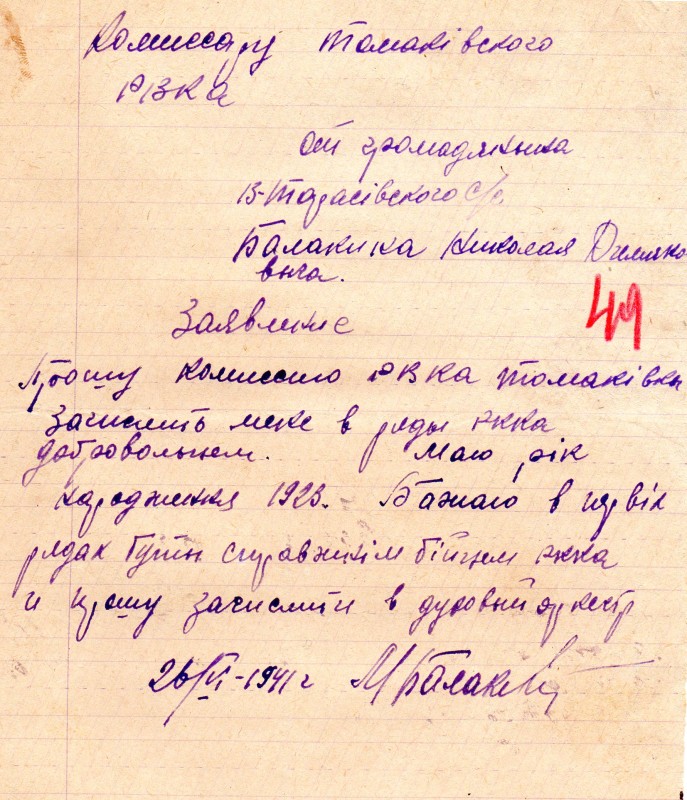 Комиссару Томаківского
РВКа
От громадянина
В-Тарасівского с/с
Балакина Николая
вича.
Заявление
49
Прошу комиссию РВКа Томаківки
Зачислить мене в ряды РККА
добровольцем. Маю рік
народження 1923. Бажаю в первіх
рядах бути справжнім бійцем РККА
и прошу зачислити в духовый оркестр
26/VI-1941 г МБалакин